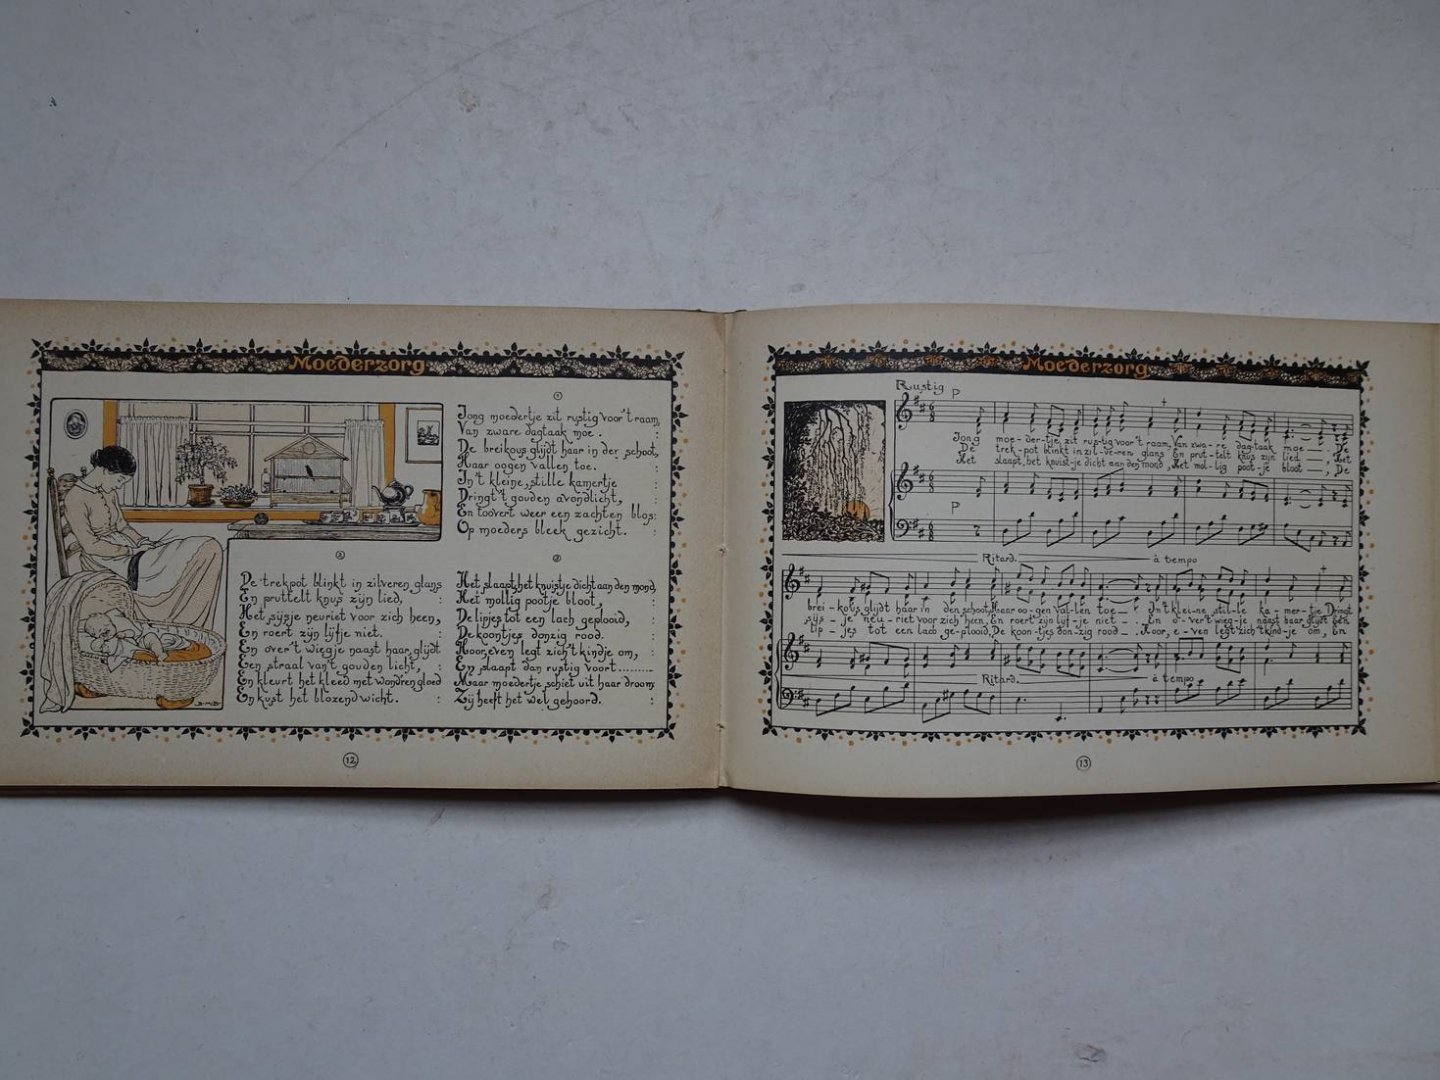 Moederzorg
①
Jong moedertje zit rustig voor 't raam,
Van zware dagtaak moe. :
De breikous glijdt haar in den schoot,
Haar oogen vallen toe. :
In 't kleine, stille kamertje
Dringt 't gouden avondlicht, :
En toovert weer een zachten blos:
Op moeders bleek gezicht. :
②
De trekpot blinkt in zilveren glans
En pruttelt knus zijn lied, :
Het sijsje neuriet voor zich heen,
En roert zijn lijfje niet. :
En over 't wiegje naast haar, glijdt
Een straal van 't gouden licht, :
En kleurt het kleed met wond'ren gloed
En kust het blozend wicht. :
③
Het slaapt, het knuistje dicht aan den mond,
Het mollig pootje bloot, :
De lipjes tot een lach geplooid,
De koontjes donzig rood. :
Hoor, even legt zich 't kindje om,
En slaapt dan rustig voort..........
Maar moedertje schiet uit haar droom:
Zij heeft het wel gehoord. :
12
Moederzorg
Rustig
P
Jong moe-der-tje, zit rus-tig voor 't raam, Van zwa-re dag-taak moe — . De
De trek-pot blinkt in zil-ve-ren glans En prut-telt knus zijn lied — , Het
Het slaapt, het knuist-je dicht aan den mond, Het mol-lig poot-je bloot — , De
P
Ritard. à tempo
brei-kous glijdt haar in den schoot, Haar oo-gen val-len toe — . In 't klei-ne, stil-le ka-mer-tje Dringt
sijs-je neu-riet voor zich heen, En roert zijn lijf-je niet — . En o-ver 't wieg-je naast haar, glijdt Een
lip-jes tot een lach ge-plooid, De koon-tjes don-zig rood — . Hoor, e-ven legt zich 't kind-je om, En
Ritard. à tempo
13